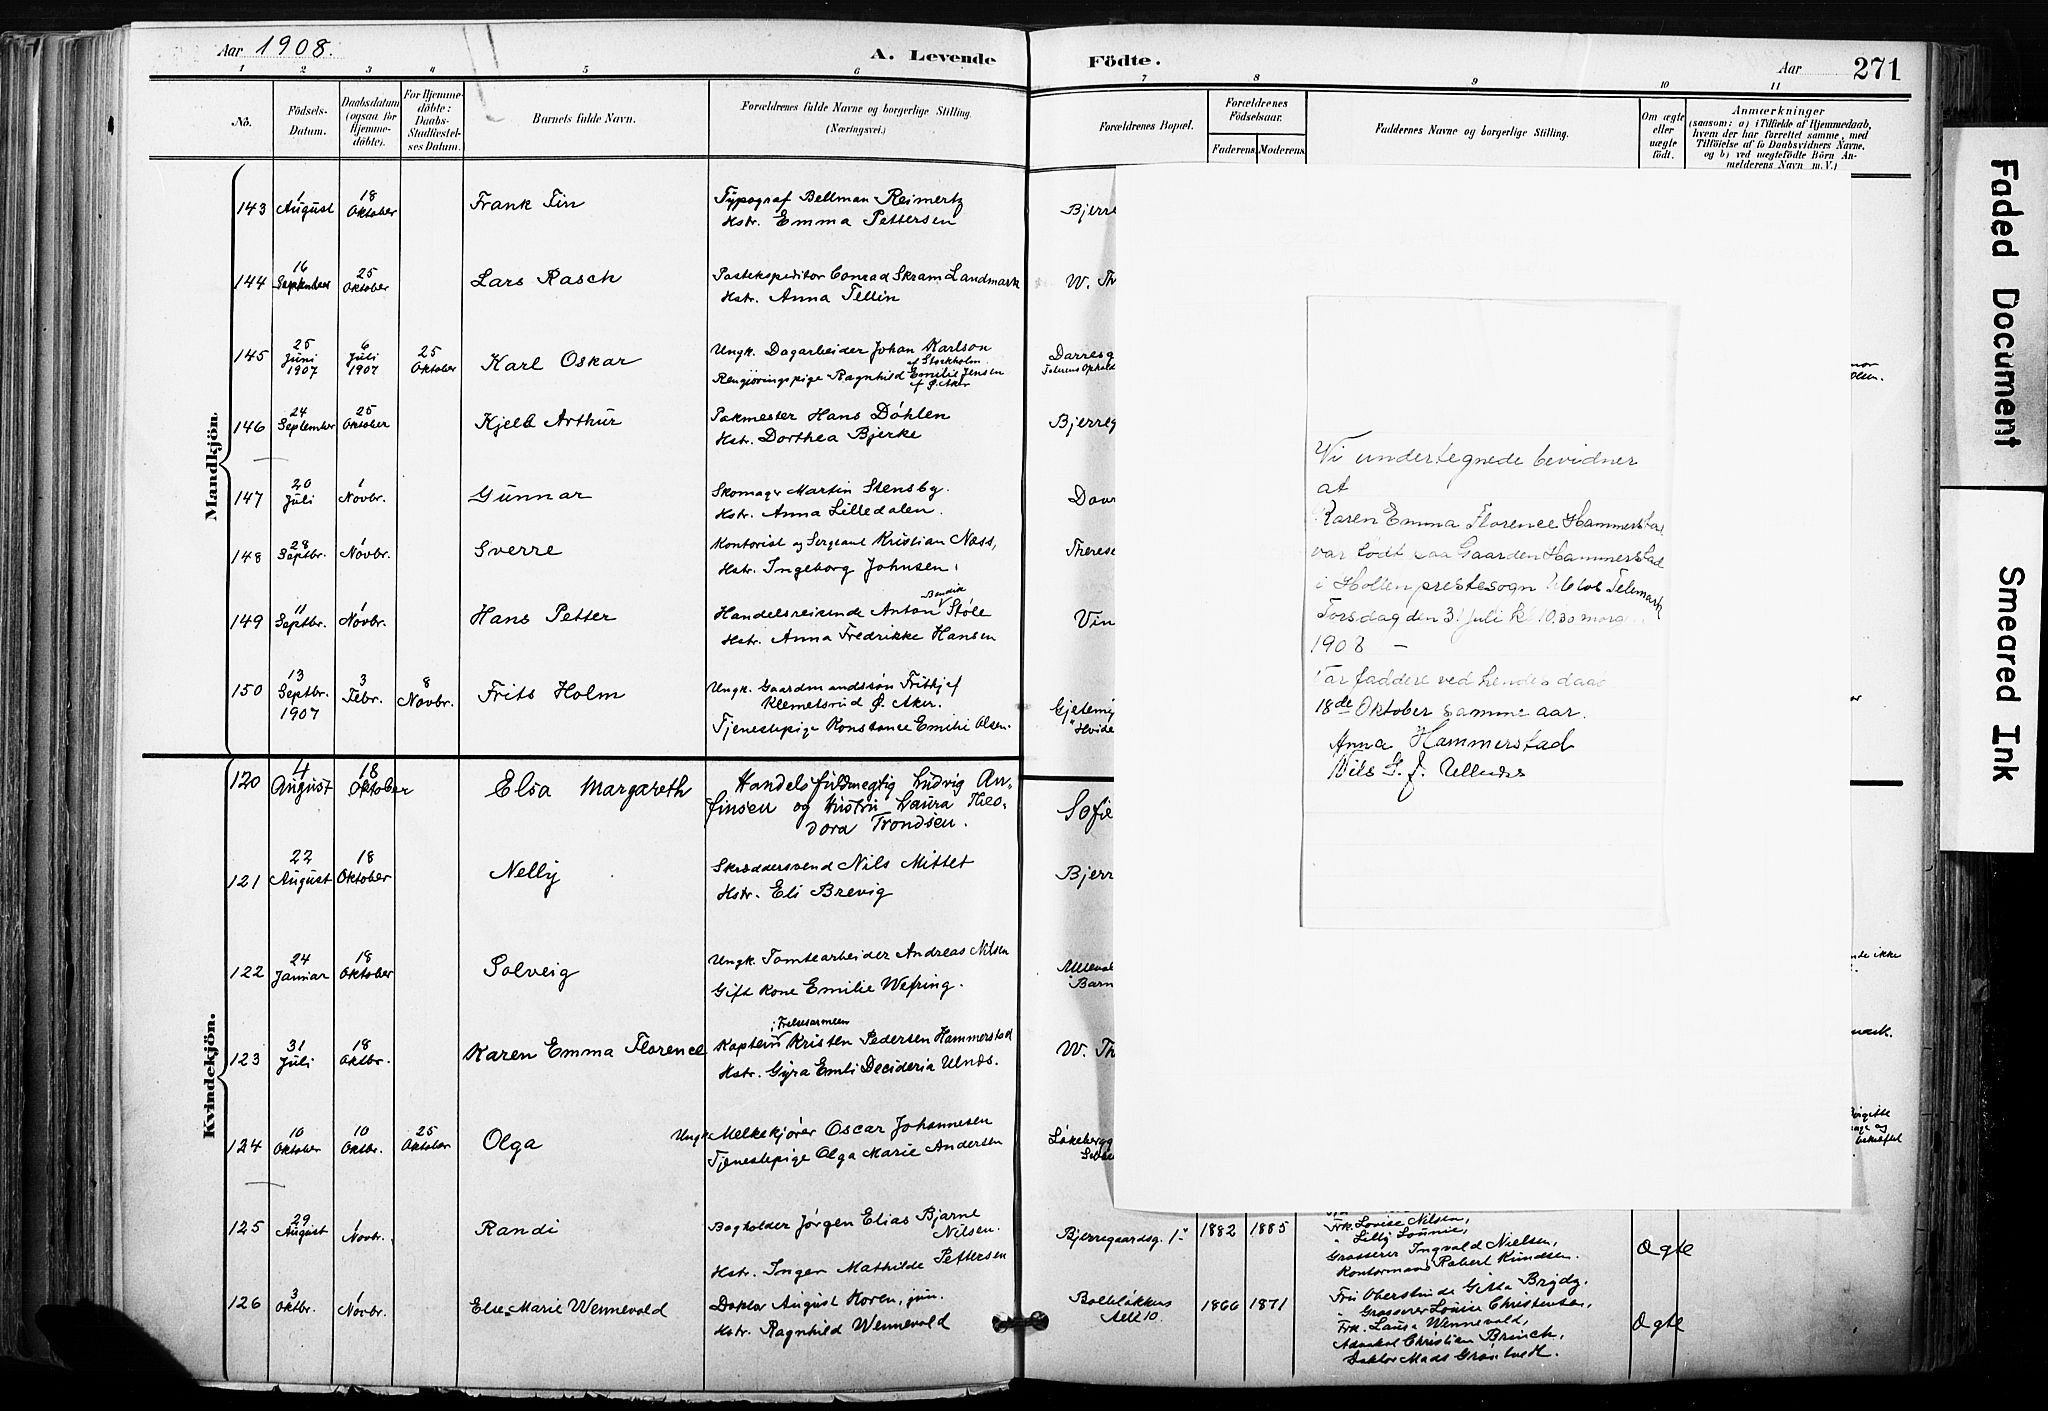 Aar 1908.
A. Levende
Födte.
Aar
271
1 2 3 4 5 6 7 8 9 10 11
No.
Födsels-
Datum.
Daabsdatum
(ogsaa for
Hjemme-
döbte).
For Hjemme-
döbte:
Daabs-
Stadfæstel-
ses Datum.
Barnets fulde Navn.
Forældrenes fulde Navne og borgerlige Stilling.
(Næringsvei.)
Forældrenes Bopæl.
Forældrenes
Födselsaar.
Faderens. Moderens.
Faddernes Navne og borgerlige Stilling.
Om ægte
eller
uægte
födt.
Anmærkninger
(saasom: a) i Tilfælde af Hjemmedaab,
hvem der har forrettet samme, med
Tilföielse af to Daabsvidners Navne,
og b) ved uægtefödte Börn An-
melderens Navn m. V.)
Mandkjön.
143 1 August 18 Oktober Frank Fin Typograf Bellman Reimertz
Hstr. Emma Pettersen Bjerre
144 16 September 25 Oktober Lars Rasch Postekspeditør Conrad Skram Landmark
Hstr. Anna Tellin W. Th
145 25 Juni 1907 6 Juli 1907 25 Oktober Karl Oskar Ungk. Dagarbeider Johan Karlson
af Stockholm
Rengjøringspige Ragnhild Emilie Jensen
af Ø. Aker
Darresg
146 24 September 25 Oktober Kjell Arthur Pakmester Hans Döhlen
Hstr. Dorthea Bjerke Bjerreg
147 20 Juli 1 Novbr. Gunnar Skomager Martin Stensby.
Hstr. Anna Lilledalen. Dovr
148 28 Septbr. 1 Novbr. Sverre Kontorist og Sergeant Kristian Næss,
Hstr. Ingeborg Johnsen. Therese
149 11 Septbr. 1 Novbr. Hans Petter Handelsreisende Anton Bendik Støle
Hstr. Anna Fredrikke Hansen Vin
150 13 Septbr. 1907 3 Febr. 8 Novbr. Frits Holm Ungk. Gaardmandssøn Frithjof
Klemetsrud Ø. Aker.
Tjenestepige Konstance Emilie Olsen
Kvindekjön.
120 4 August 18 Oktober Elsa Margareth Handelsfuldmegtig Ludvig An-
finsen og Hustru Laura Theo-
dora Trondsen. Sofie
121 22 August 18 Oktober Nelly Skræddersvend Nils Mittet
Hstr. Eli Brevig Bjerr
122 24 Januar 18 Oktober Solveig Ungk. Tomtearbeider Andreas Nilsen
Gift Kone Emilie Wefring. Ulleval
Barn
123 31 Juli 18 Oktbr. Karen Emma Florence Kaptein i Frelsesarmeen Kristen Pedersen Hammerstad
Hstr. Gyra Emli Decideria Ulnæs. W. Th
124 10 Oktober 10 Oktbr. 25 Oktober Olga Ungk. Melkekjører Oscar Johannesen
Tjenestepige Olga Marie Andersen Løkebergg
125 29 August 1 Novbr. Randi Bogholder Jørgen Elias Bjarne
Nilsen.
Hstr. Inger Mathilde Pettersen
Bjerregaardsg. 1 1882 1885
Frk. Lovise Nilsen,
Grosserer Ingvald Nielsen,
Kontormand Robert Knudsen.
Ægte
126 3 Oktbr. 1 Novbr. Else Marie Wennevold Doktor August Koren, jun.
Hstr. Ragnhild Wennevold
Bolteløkkens
Allé 10. 1866 1871
Fru Oberstinde Gitta Brydy,
Grosserer Louis Christensen,
Frk. Laura Wennevold,
Advokat Christian Brinck,
Doktor Mads Grønvold.
Ægte
Vi undertegnede bevidner
at
Karen Emma Florence Hammerstad
var født paa Gaarden Hammerstad
i Hollen prestesogn Telemark
Torsdag den 31 Juli kl 10.30 morg
1908 —
Var faddere ved hendes daab
18de Oktober samme aar.
Anna Hammerstad
Nils G. J. Ullnæs
Faded Document
Smeared Ink